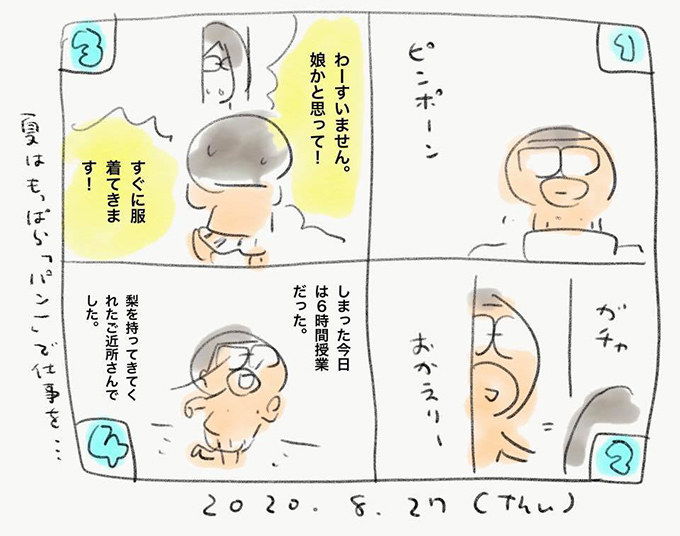 1
ピンポーン
2
ガチャ
おかえりー
3
わーすいません。
娘かと思って！
すぐに服
着てきま
す！
4
しまった今日
は６時間授業
だった。
梨を持ってきてく
れたご近所さんで
した。
夏はもっぱら「パンー」で仕事を…
2020. 8. 27 (Thu)